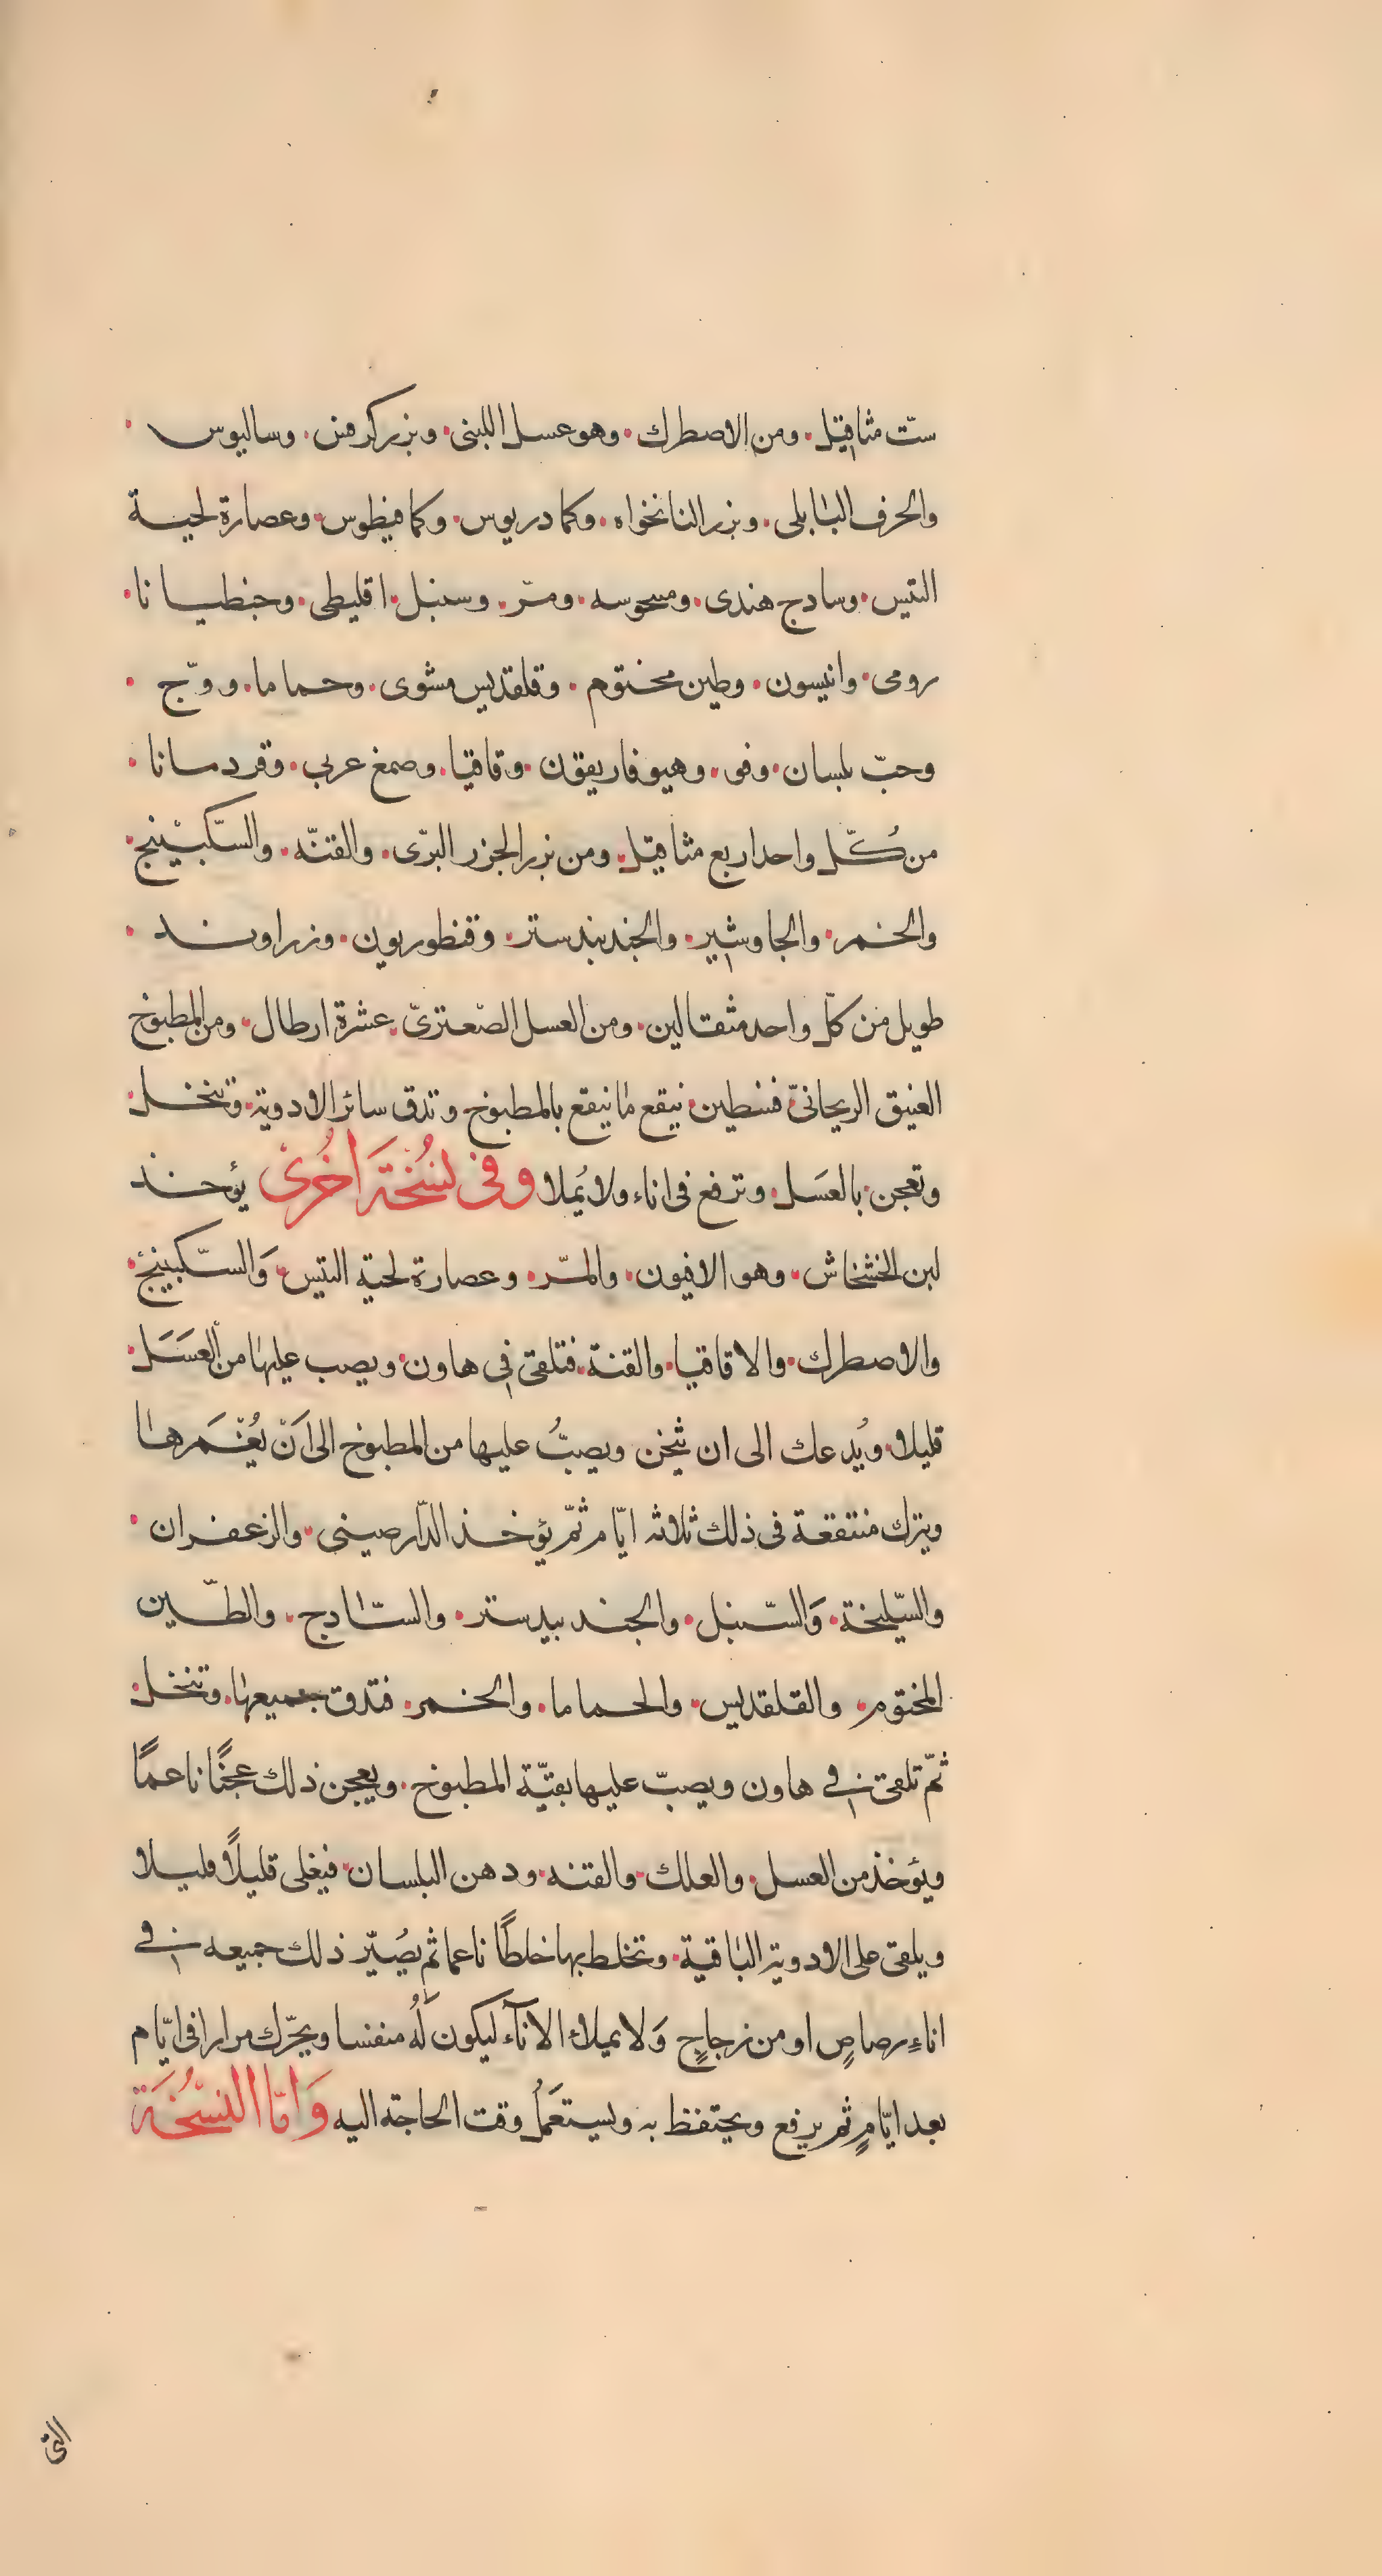 ستّ مثاقيل. ومن الاصطرك. وهو عسل اللبنى. وبزر كرفس. وساليوس.
والحرف البابلى. وبزر النانخواه. وكمادريوس. وكمافيطوس. وعصارة لحية
التيس. وسادج هندى. وميحوسه. ومرّ. وسنبل. اقليطى. وجنطيانا.
رومى. وانيسون. وطين مختوم. وقلقديس مشوى. وحماما. ووجّ.
وحبّ بلسان. وفو. وهيوفاريقون. وقاقيا. وصمغ عربى. وقردمانا.
من كُلّ واحد اربع مثاقيل. ومن بزر الجزر البرّى. والقنّه. والسّكبينج.
والخمر. والجاوشير. والجندبيدستر. وقنطوريون. وزراوند.
طويل من كلّ واحد مثقالين. ومن العسل الصّعترىّ. عشرة ارطال. ومن المطبوخ
العتيق الريحانىّ فسطين. ينقع ما ينقع بالمطبوخ وتدق سائر الادوية. وتنخل.
وتعجن. بالعَسل. وترفع فى اناء ولا يُملا وفى نسُخَة اخُرىٰ يؤخذ
لبن الخشخاش. وهو الافيون. والمرّ. وعصارة لحية التيس. وَالسّكبينج.
والاصطرك. والاقاقيا. والقنة. فتلقى فى هاون. ويصب عليها من العسَل.
قليلا. ويُدعك الى ان يثخن ويصبُّ عليها من المطبوخ الى اَنْ يُغْمَرها
ويترك منتقعة فى ذلك ثلاثه ايّام ثمّ يؤخذ الدّارصينى. والزعفران.
والسّليخة. وَالسّنبل. والجند بيدستر. والسّادج. والطّين
المختوم. والقلقديس. والحماما. والخمر. فتدق جميعها. وتنخل.
ثمّ تلقى فى هاون ويصبّ عليها بقيّة المطبوخ. ويعجن ذلك عجنًا ناعمًا
ويؤخذ من العسل. والعلك. والقنه. ودهن البلسان. فيغلى قليلًا قليلا
ويلقى على الادوية الباقية. وتخلط بها خلطًا ناعما ثم يصُيّر ذلك جميعه فى
اناءِ رصاصٍ او من زجاجٍ وَلا يملاء الانآء ليكون لَهُ منفسا ويحرّك مرارا فى ايّام
بعد ايّامٍ ثم يرفع ويحتفظ به ويستعَملُ وقت الحاجة اليه وَامّا النسُّخَة
التى